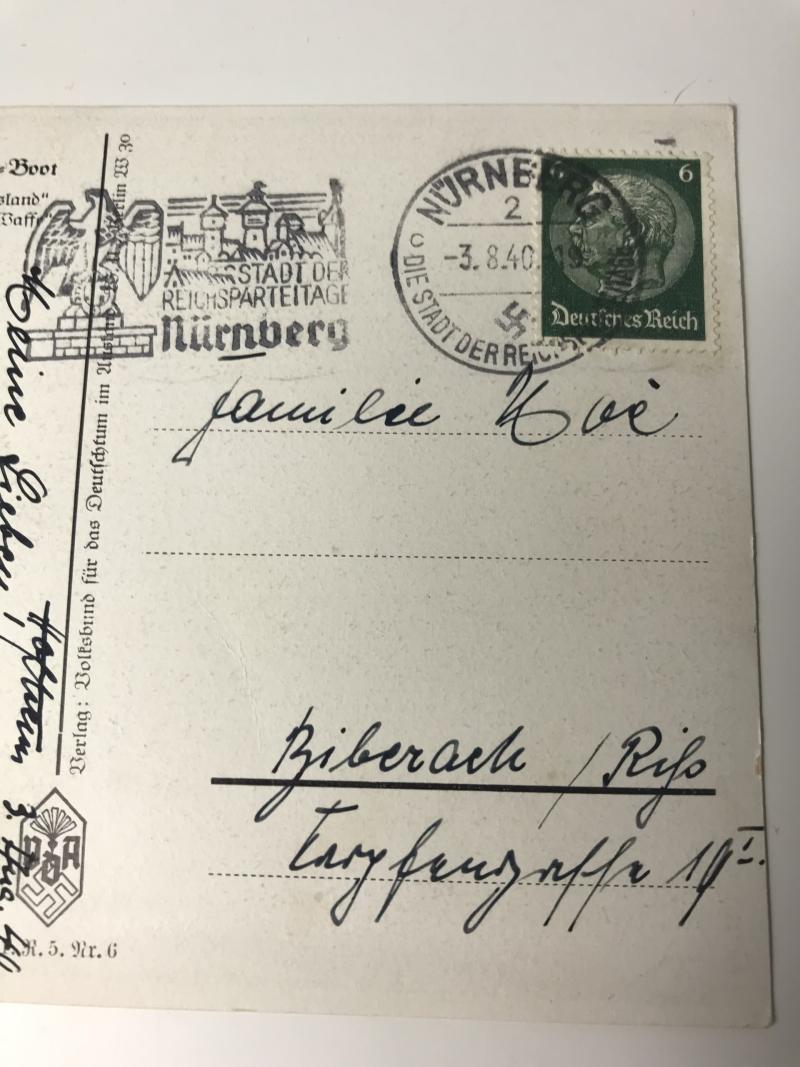 -Boot
sland"
Waffe"
STADT DER
REICHSPARTEITAGE
Nürnberg
NÜRNBERG
2
-3.8.40. 19
DIE STADT DER REICHSPARTEITAGE
6
Deutsches Reich
Familie
Biberach / Riß
Karpfengasse 19 I.
Verlag: Volksbund für das Deutschtum im Ausland, Berlin W 30
Meine Lieben!
3. Aug. 40
VDA
R. 5. Nr. 6